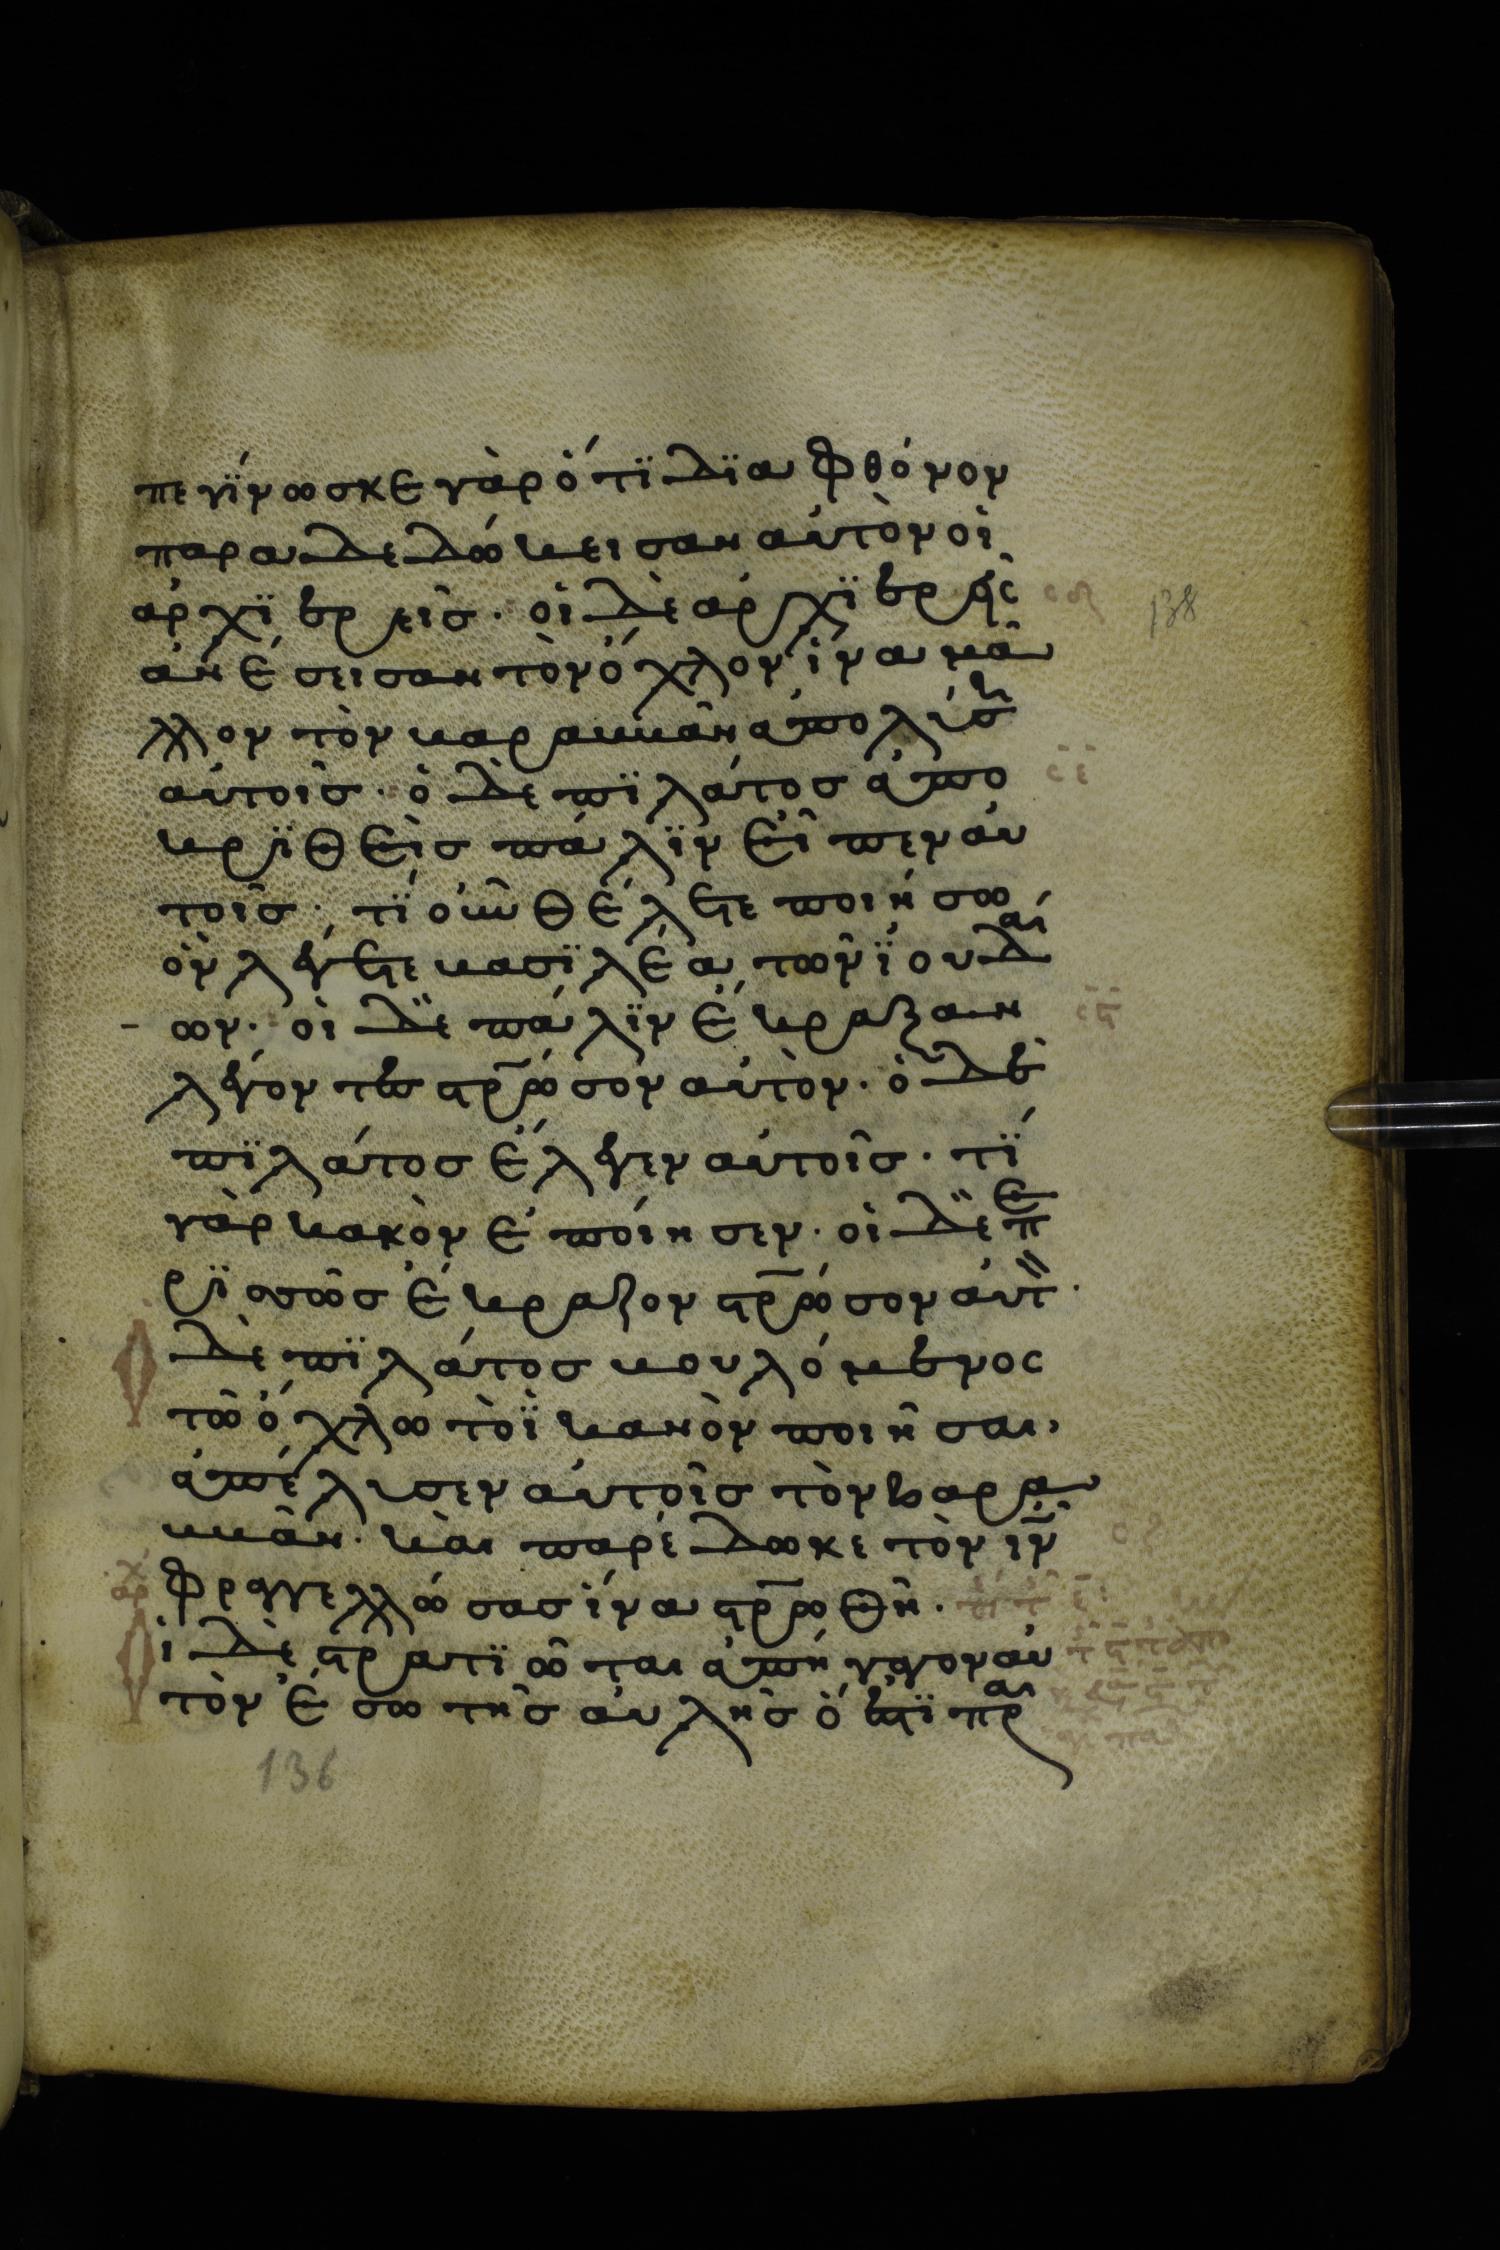 πεγΐνωσκε γὰρ ὅτϊ δϊα φθόνον
παραδεδώκεισαν αὐτὸν οἱ
ἀρχϊερεῖς· οἱ δὲ ἀρχϊερεῖς σδ
138
ἀνέσεισαν τὸν ὄχλον ἵνα μᾶ
λλον τὸν βαραββᾶν ἀπολύση
αὐτοῖς· ὁ δὲ πϊλάτος ἀπο σ̅ε̅
κρϊθεὶς πάλϊν εἶπεν αὐ
τοῖς· τΐ οὖν θέλετε ποιήσω
ὃν λέγετε βασϊλέα τῶν ϊουδαί
ων· οἱ δὲ πάλϊν ἔκραξαν σ̅ϛ̅
λέγοντες στ̅ρώσον αὐτὸν· ὁ δὲ
πϊλάτος ἔλεγεν αὐτοῖς· τΐ
γὰρ κακὸν ἐποίησεν· οἱ δὲ πε
ρϊσσῶς ἔκραζον στ̅ρώσον αὐτ·
Ὁ δὲ πϊλάτος βουλόμενος
τῶ ὄχλω τὸ ϊκανὸν ποιῆσαι,
ἀπέλυσεν αὐτοῖς τὸν βαρα
ββᾶν· καὶ παρέδωκε τὸν ι̅ν̅ σζ
φραγγελλώσας ἵνα στ̅ρωθῆ·
Οἱ δὲ στρατϊῶται ἀπήγαγον αὐ
τὸν ἔσω τῆς αὐλῆς ὅ ἐστϊ πραι
136